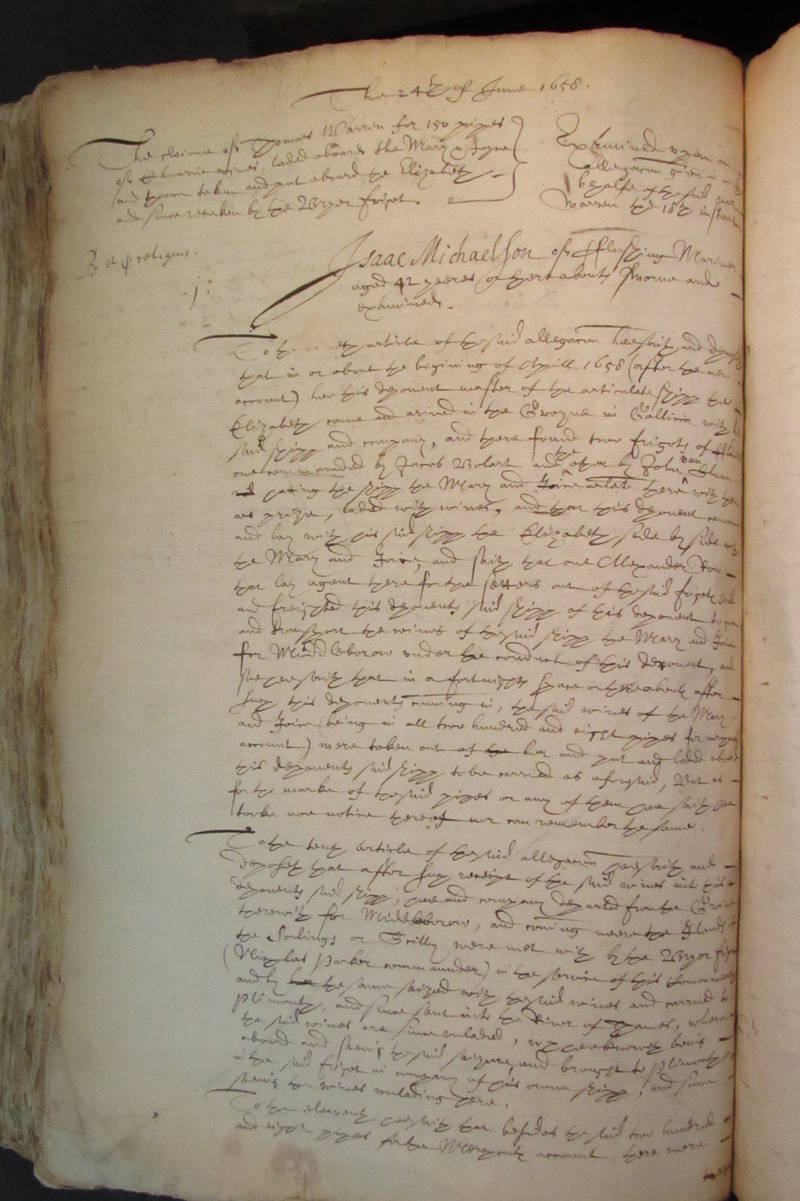 The 24th of June 1658.
The claime of Thomas Warren for 150 pipes
of Canarie wines, laded aboard the Mary & Joyne
and thence taken and put aboard the Elizabeth
and since retaken by the Bryer frigot.
Examined upon an
allegacon given in
behalfe of the said
Warren the 18th instant
j:
Isaac Michaelson of fflushing Mariner
aged 42 yeeres or thereabouts sworne and
examined.
To the article of the said allegacon hee saith and deposeth
that in or about the beginning of Aprill 1658 (after the new
account) hee this deponent master of the articulate shipp the
Elizabeth came and arived in the Groyne in Gallicia with his
said shipp and company, and there found two frigots of
one commanded by Jacob Bolart and the other by John van
the shipp the Mary and Joine there with them
as prize, laded with wines, and that this deponent came
and lay with his said shipp the Elizabeth side by side with
the Mary and Joine, and saith that one Alexander
that lay agent there for the setters out of the said frigots
and freighted this deponents said shipp of this deponent to
and transport the wines of the said shipp the Mary and Joine
for Middleborow under the conduct of this deponent, and
further saith that in a fortnights space or thereabouts after
such this deponents coming in, the said wines of the Mary
and Joine (being in all two hundred and eight pipes for
account) were taken out of her and put and laded aboard
this deponents said shipp to be carried as aforesaid, But as
for the marke of the said pipes or any of them hee saith hee
tooke noe notice thereof nor can remember the same.
To the tenth article of the said allegacon hee saith and
deposeth that after such receipt of the said wines into this
deponents said shipp, hee and company departed from the Groine
therewith for Middleborow, and coming neere the Islands of
the Sorlings or Scilly were met with by the Bryer frigot
(Nicholas Parker commander) in the service of this
and by the same seized with the said wines and carried to
Plimouth, and since sent into the River of Thames, where
the said wines are since unladed, which hee knoweth being
aboard and seeing the said seizure, and brought to Plimouth
in the said frigot in company of his owne shipp, and since
seeing the wines unlading here.
To the eleaventh hee saith that besides the said two hundred
and eight pipes for the Merchants account, there were